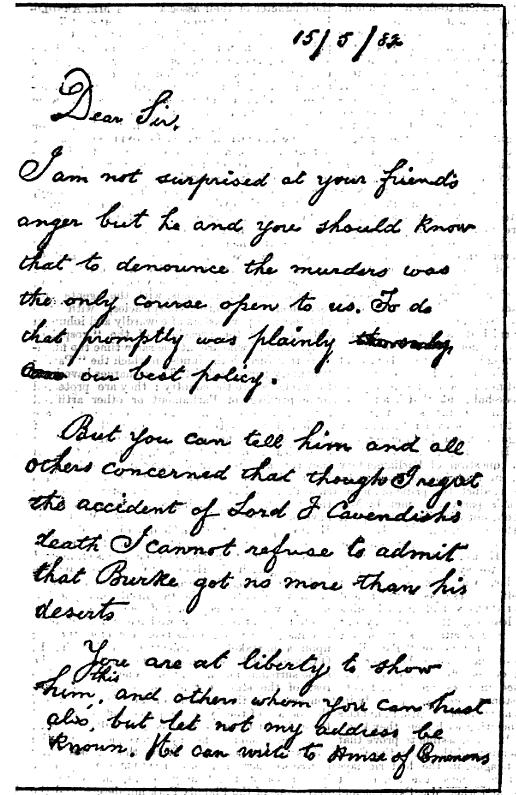 15/5/82
Dear Sir,
I am not surprised at your friend's
anger but he and you should know
that to denounce the murders was
the only course open to us. To do
that promptly was plainly the only
our best policy.
But you can tell him and all
others concerned that though I regret
the accident of Lord F Cavendish's
death I cannot refuse to admit
that Burke got no more than his
deserts
You are at liberty to show
him this, and others whom you can trust
also, but let not my address be
known. He can write to House of Commons